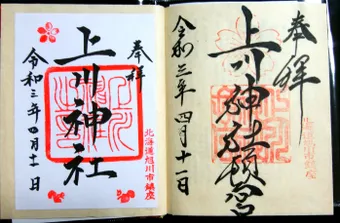 奉拝
上川神社頓宮
令和三年四月十一日
北海道旭川市鎮座
奉拝
上川神社
令和三年四月十一日
北海道旭川市鎮座